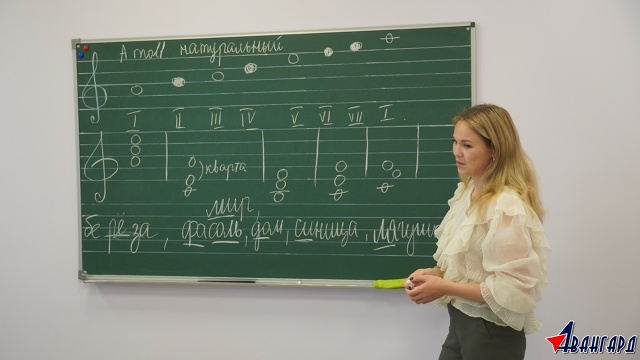 A moll натуральный
I II III IV V VI VII I.
кварта
мир,
берёза, фасоль, дом, синица, лягушк
АВАНГАРД